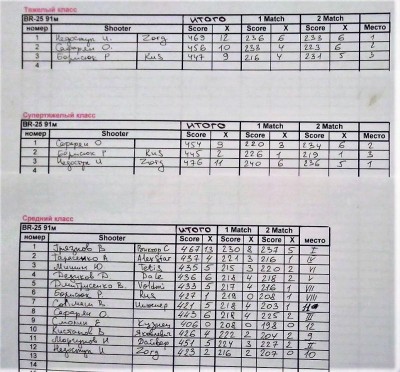 Тяжелый класс
BR-25 91м ИТОГО 1 Match 2 Match
номер Shooter Score X Score X Score X Место
1 И. Zorg 469 12 236 6 233 6 1
2 Сафарли О. 456 10 233 4 223 6 2
3 Борисюк Р Kus 447 9 216 4 231 5 3
4
Супертяжелый класс
BR-25 91м ИТОГО 1 Match 2 Match
номер Shooter Score X Score X Score X Место
1 Сафарли О 454 9 220 3 234 6 2
2 Борисюк Р Kus 445 2 226 1 219 1 3
3 И Zorg 476 11 240 6 236 5 1
4
Средний класс
BR-25 91м ИТОГО 1 Match 2 Match место
номер Shooter Score X Score X Score X
В 467 13 230 8 237 5
2 Тарасенко А AlexStar 437 4 221 3 216 1
3 Мишин Ю Tetis 435 5 215 3 220 2 VI
4 Д Dale 436 6 218 4 218 2 V
5 Дмитрусенко В. Voldmi 433 5 217 4 216 1 VII
6 Борисюк Р. Kus 427 1 219 0 208 1 VIII
7 В 421 5 218 4 203 1
8 Сафарли О. 443 6 218 4 225 2 III
9 Е 406 0 208 0 198 0 12
10 А 426 4 222 2 204 2 9
11 И 451 5 224 3 227 2 II
12 И Zorg 423 2 216 2 207 0 10
13